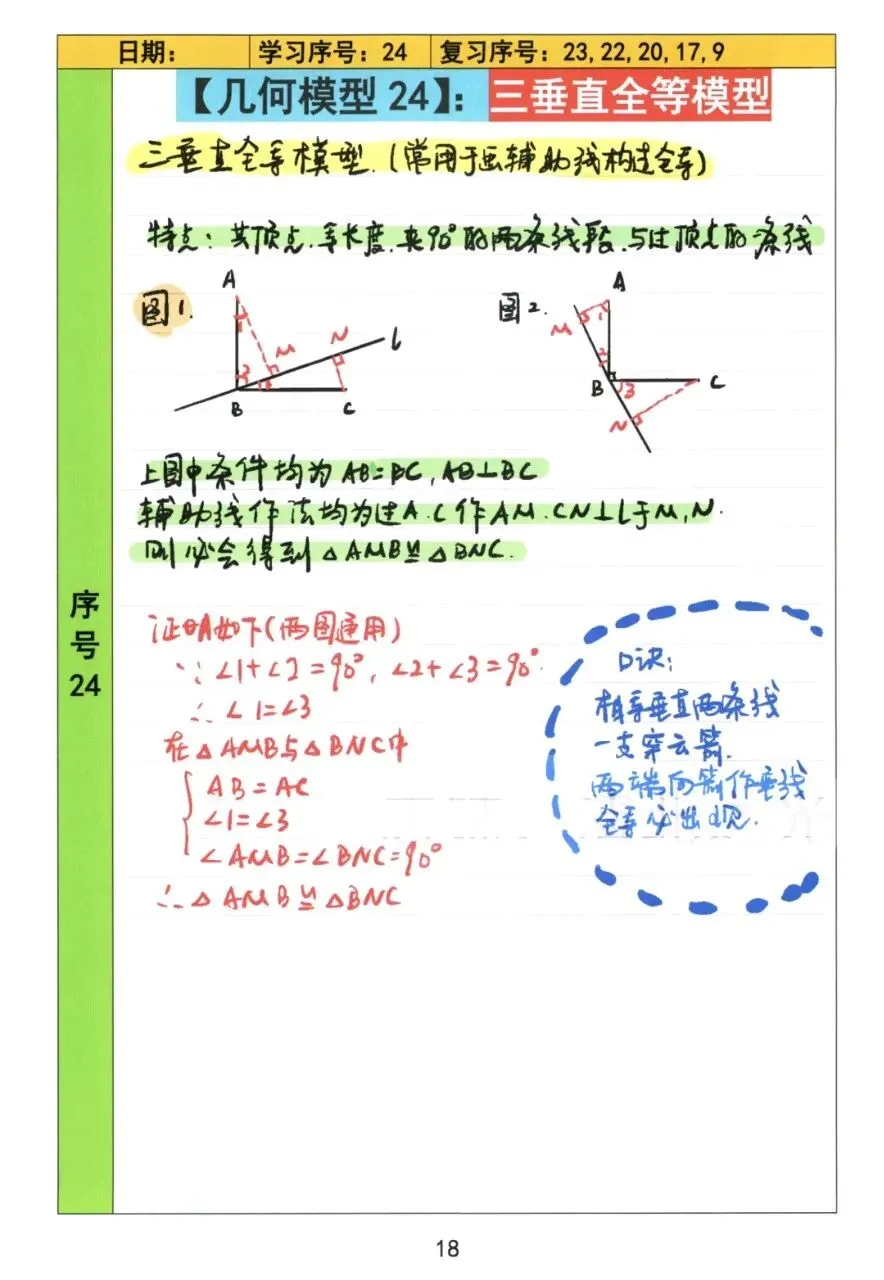 日期： 学习序号：24 复习序号：23,22,20,17,9
【几何模型 24】：三垂直全等模型
三垂直全等模型.(常用于画辅助线构造全等)
特点：共顶点.等长度.夹90°的两条线段.与过顶点的一条线
图1. A 1 2 3 M N l B C
图2. A M 1 2 B 3 C N
上图中条件均为AB=BC,AB⊥BC
辅助线作法均为过A.C作AM.CN⊥l于M,N.
则必会得到△AMB≌△BNC.
序号24
证明如下(两图通用)
∵∠1+∠2=90°,∠2+∠3=90°.
∴∠1=∠3
在△AMB与△BNC中
AB=AC
∠1=∠3
∠AMB=∠BNC=90°
∴△AMB≌△BNC
口诀：
相等垂直两条线
一支穿云箭.
两端向箭作垂线
全等必出现.
18